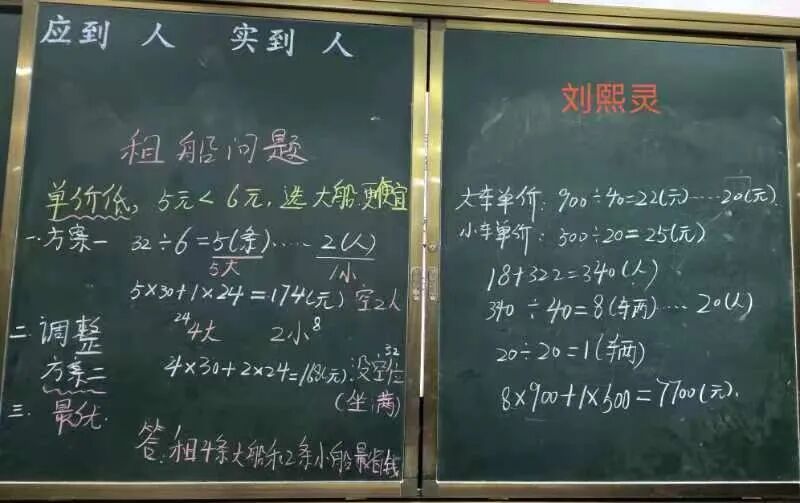 应到 人 实到 人
租船问题
单价低, 5元<6元, 选大船更便宜
一.方案一 32÷6=5(条)……2(人)
5大 1小
5×30+1×24=174(元) 空2人
24 4大 2小 8
二.调整
方案二 4×30+2×24=168(元) 没空位 32
(坐满)
三.最优
答:租4条大船和2条小船最省钱
刘熙灵
大车单价: 900÷40=22(元)……20(元)
小车单价: 500÷20=25(元)
18+322=340(人)
340÷40=8(车两)……20(人)
20÷20=1(车两)
8×900+1×500=7700(元).